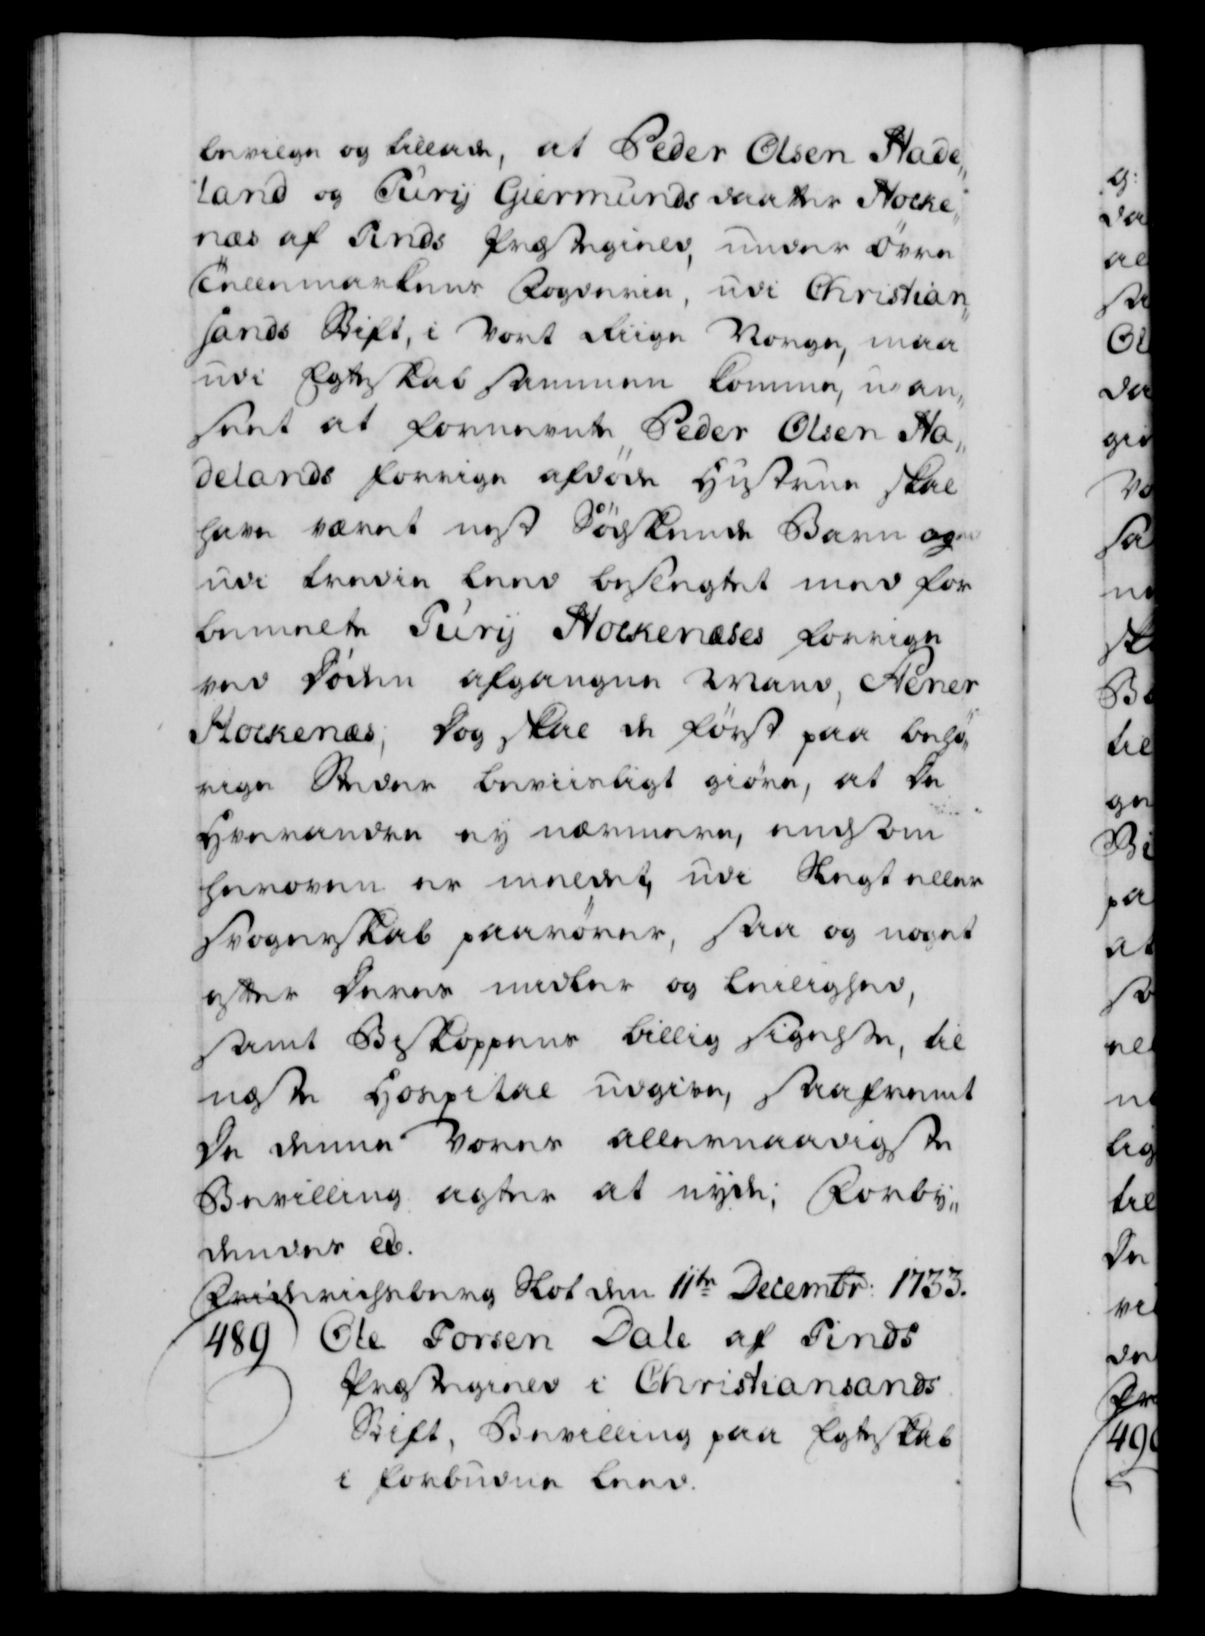 bevilge og tillade, at Peder Olsen Hade„
land og Turij Giermunds daatter Hocke„
næs af Tinds Præstegield, under Øvre
Tellemarkens Fogderie, udi Christian„
sands Stift, i Vort Riige Norge, maa
udi Egteskab sammen komme, uan„
seet at fornevnte Peder Olsen Ha„
delands forrige afdøde Hustrue skal
have været nest Sødskende Barn og
udi tredie Leed beslegtet med for
bemelte Turij Hockenæses forrige
ved Døden afgangne Mand, Aener
Hockenæs; Dog skal de først paa behø„
rige Steder beviisligt giøre, at De
Hverandre ey nærmere, end som
heroven er meldet, udi Slegt eller
Svogerskab paarører, saa og noget
efter Deres midler og Leilighed,
samt Biskoppens billig sigelse, til
neste Hospital udgive, saafremt
De denne Vores allernaadigste
Bevilling agter at nyde; Forby„
dendes etc.
Friderichsberg Slot den 11te Decembr: 1733.
489) Ole Torsen Dale af Tinds
Præstegield i Christiansands
Stift, Bevilling paa Egteskab
i forbudne Leed.